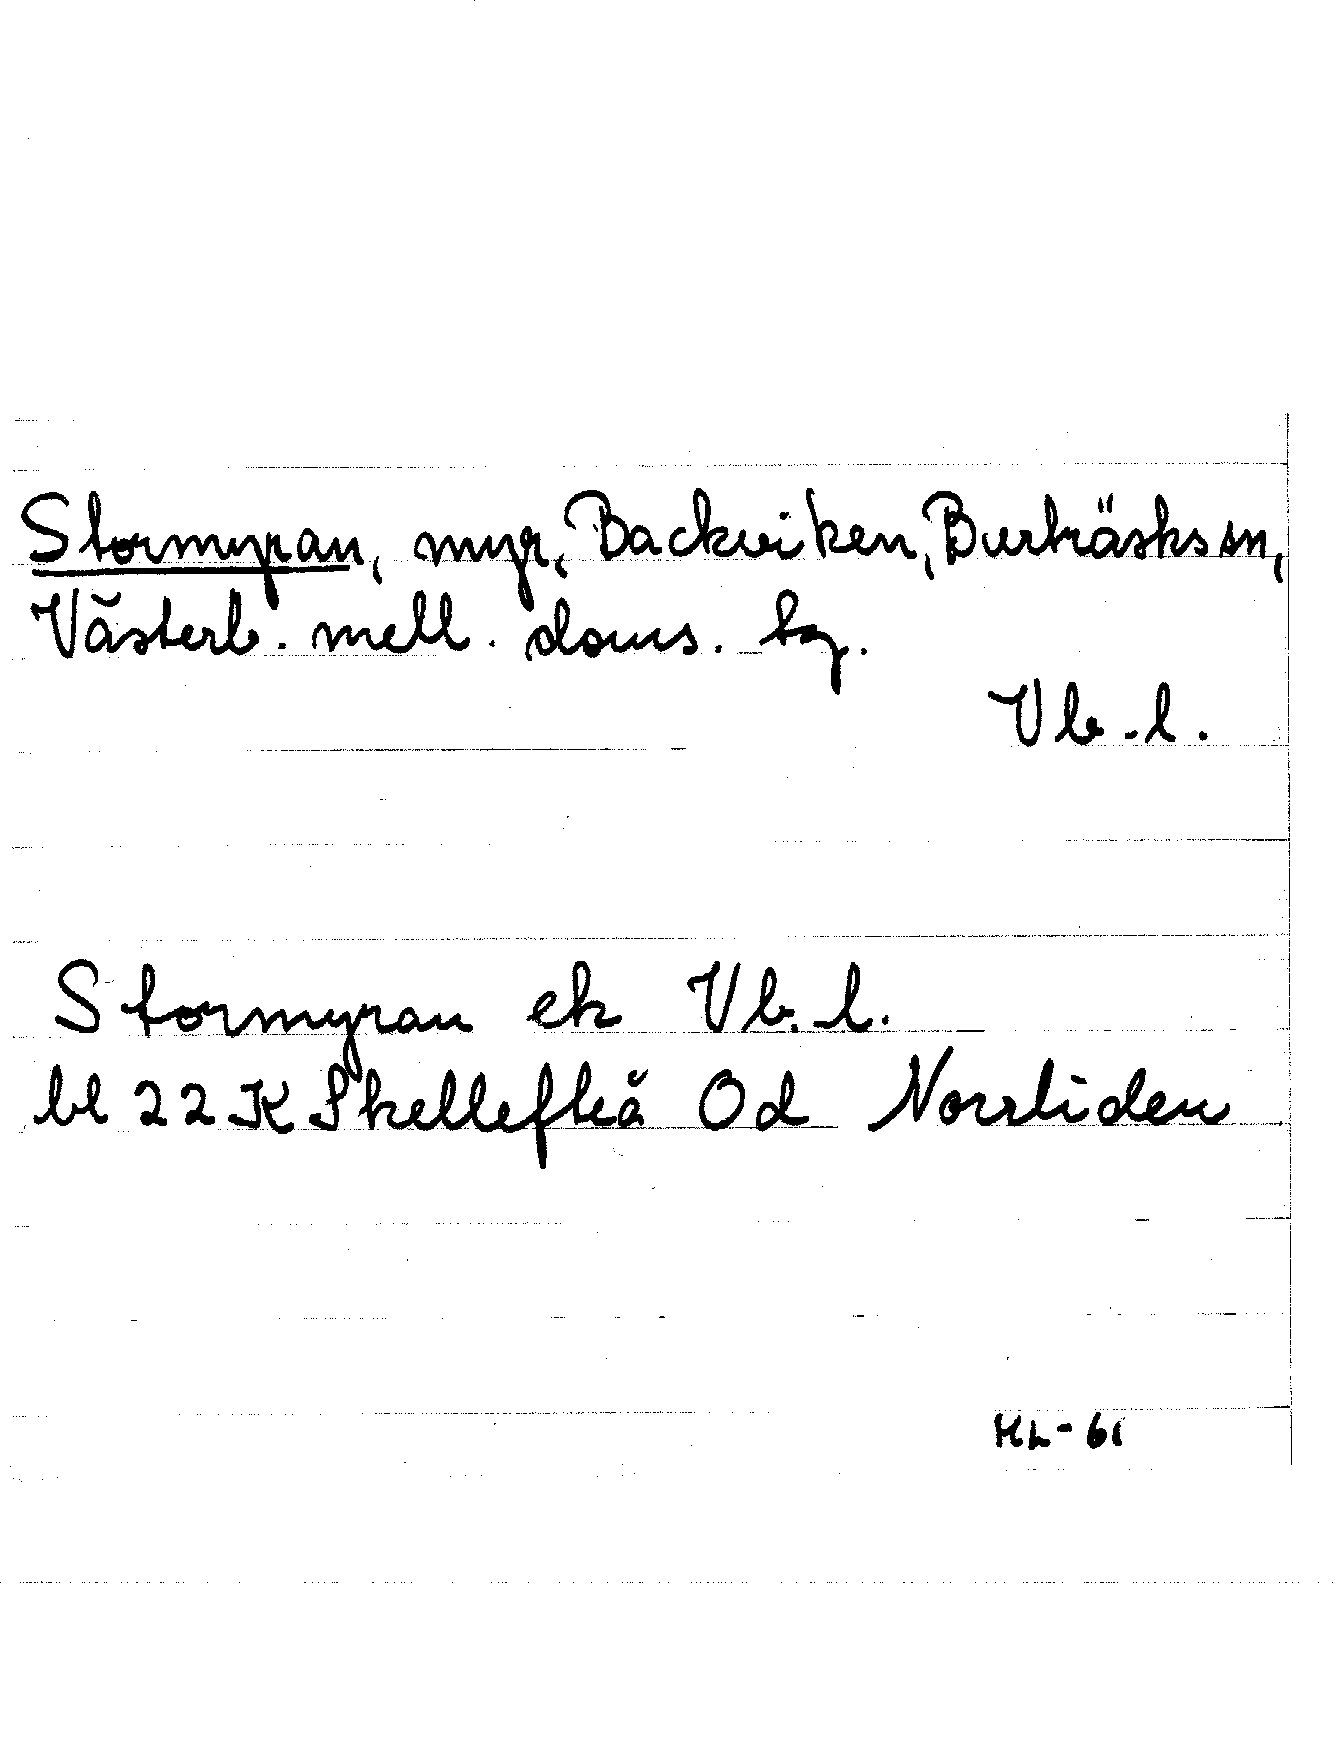 Stormyran, myr, Backviken, Burträsks sn,
Västerb. mell. doms. tg.
Vb.l.
Stormyran ek Vb.l.
bl 22K Skellefteå Od Norrliden
HL-61